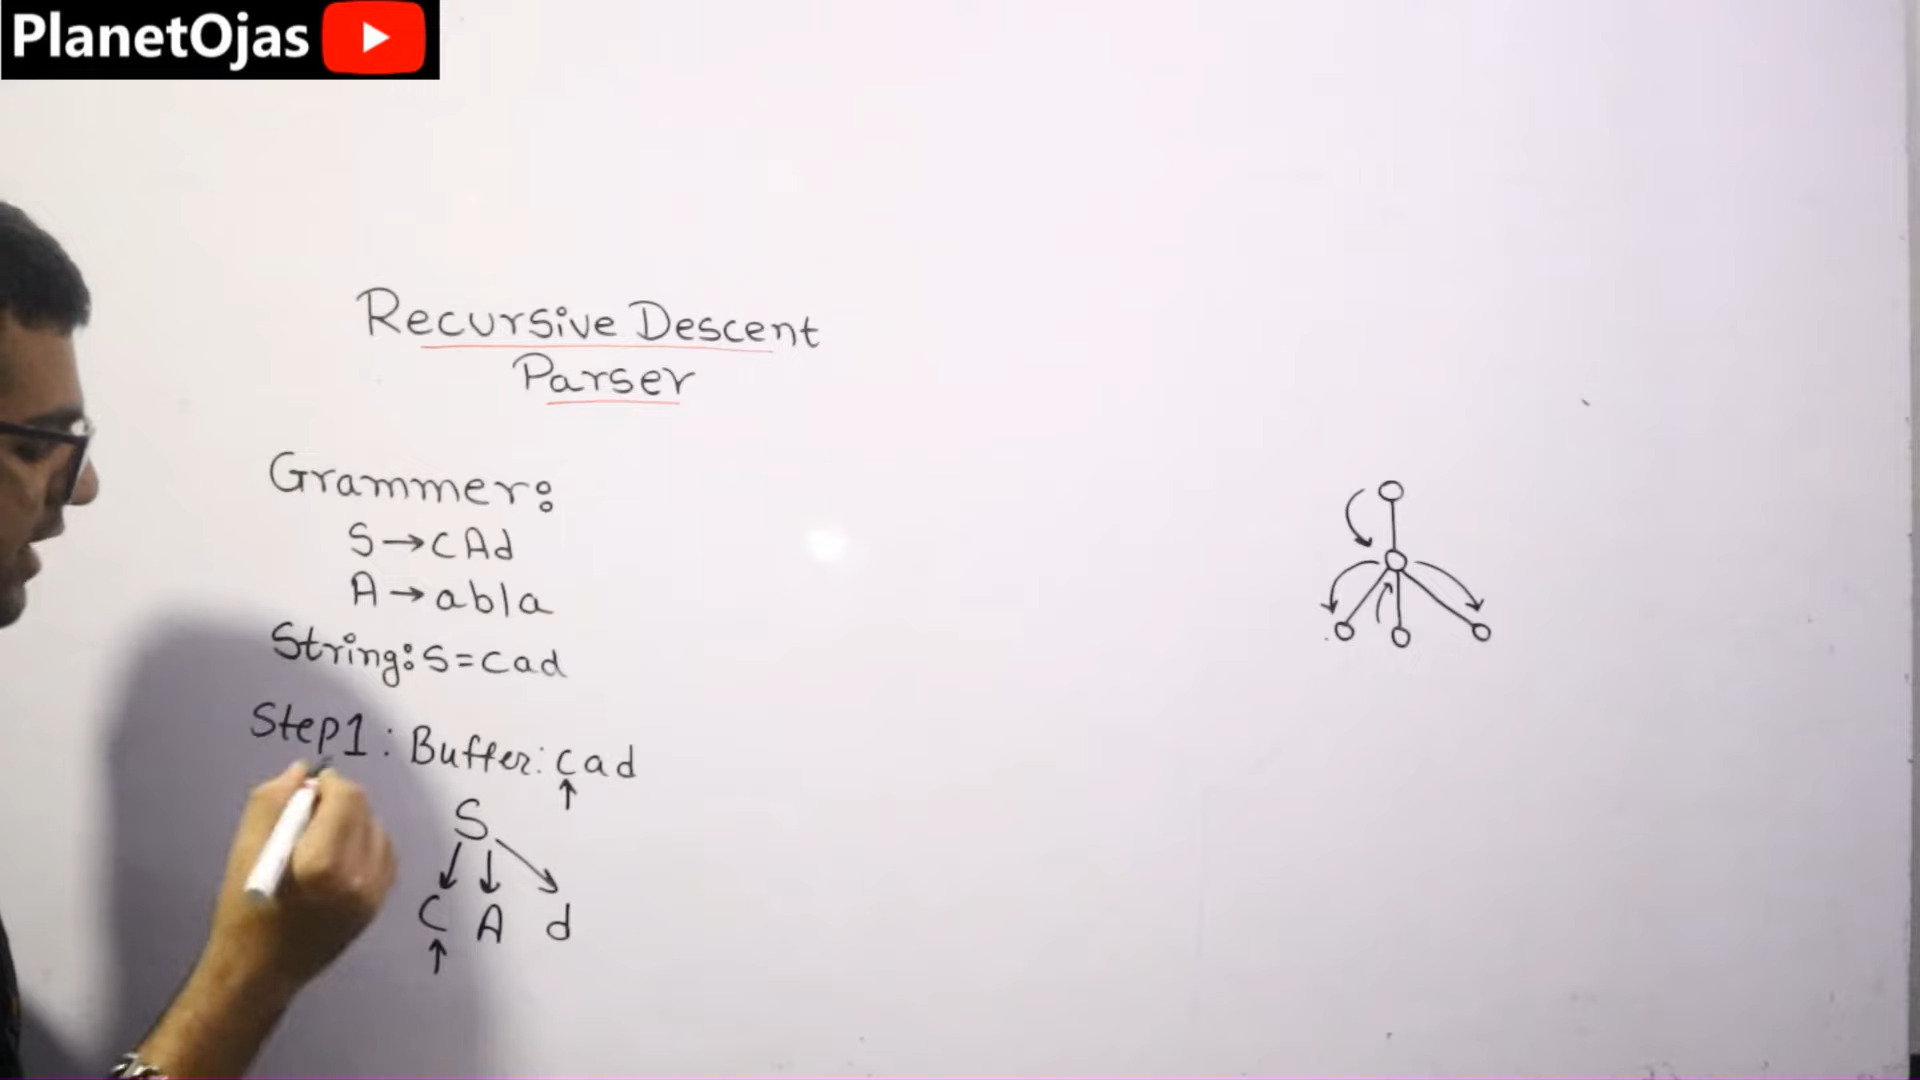 PlanetOjas
Recursive Descent
Parser
Grammer:
S→cAd
A→ab|a
String: S=cad
Step1: Buffer: cad
↑
S
C A d
↑